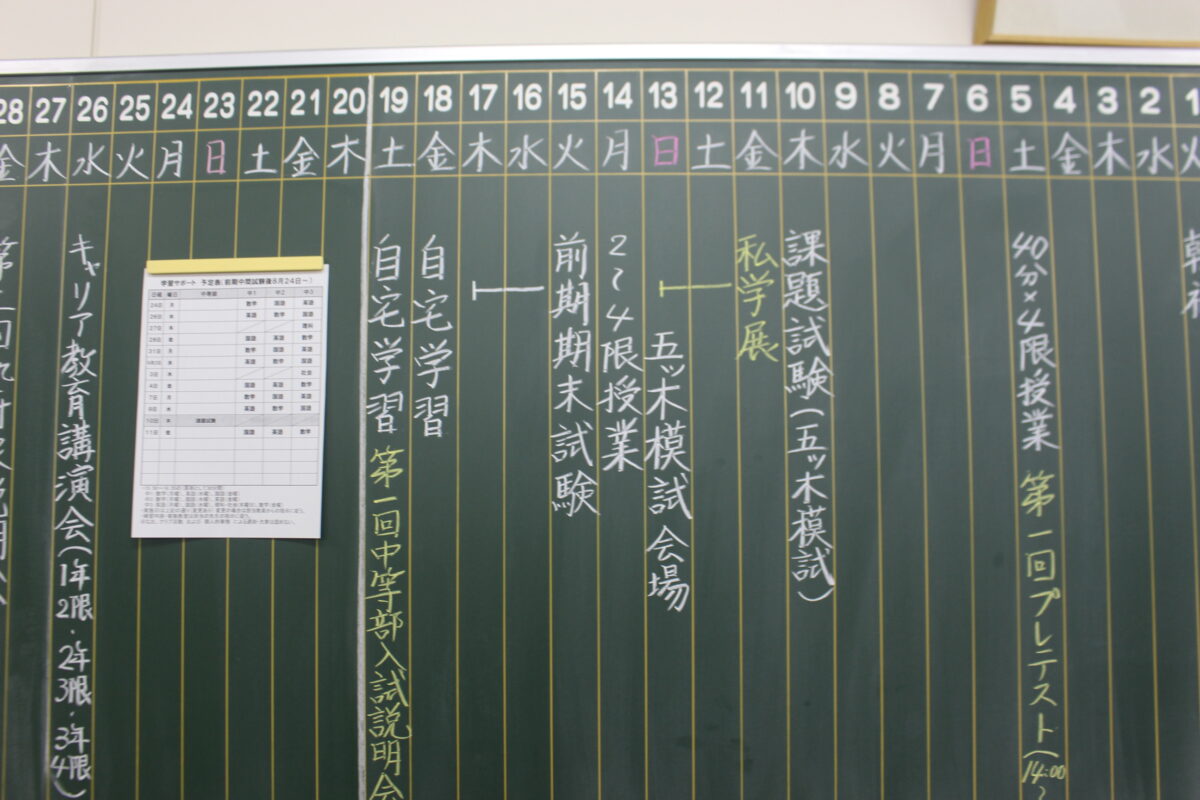 28 27 26 25 24 23 22 21 20 19 18 17 16 15 14 13 12 11 10 9 8 7 6 5 4 3 2 1
金 木 水 火 月 日 土 金 木 土 金 木 水 火 月 日 土 金 木 水 火 月 日 土 金 木 水 火
40分×4限授業 第一回プレテスト(14:00~
課題試験(五ッ木模試)
私学展
五ッ木模試会場
2~4限授業
前期期末試験
自宅学習
自宅学習 第一回中等部入試説明会
学習サポート 予定表(前期中間試験後8月24日~)
日程 曜日 中等部 中1 中2 中3
数学 国語 英語
26日 水 英語 数学 国語
27日 木 理科
28日 金 国語 英語 数学
31日 月 数学 国語 英語
水 英語 数学 国語
3日 木 社会
4日 金 国語 英語 数学
7日 月 数学 国語 英語
9日 水 英語 数学 国語
10日 木 課題試験
11日 金 国語 英語 数学
キャリア教育講演会(1年2限・2年3限・3年4限)